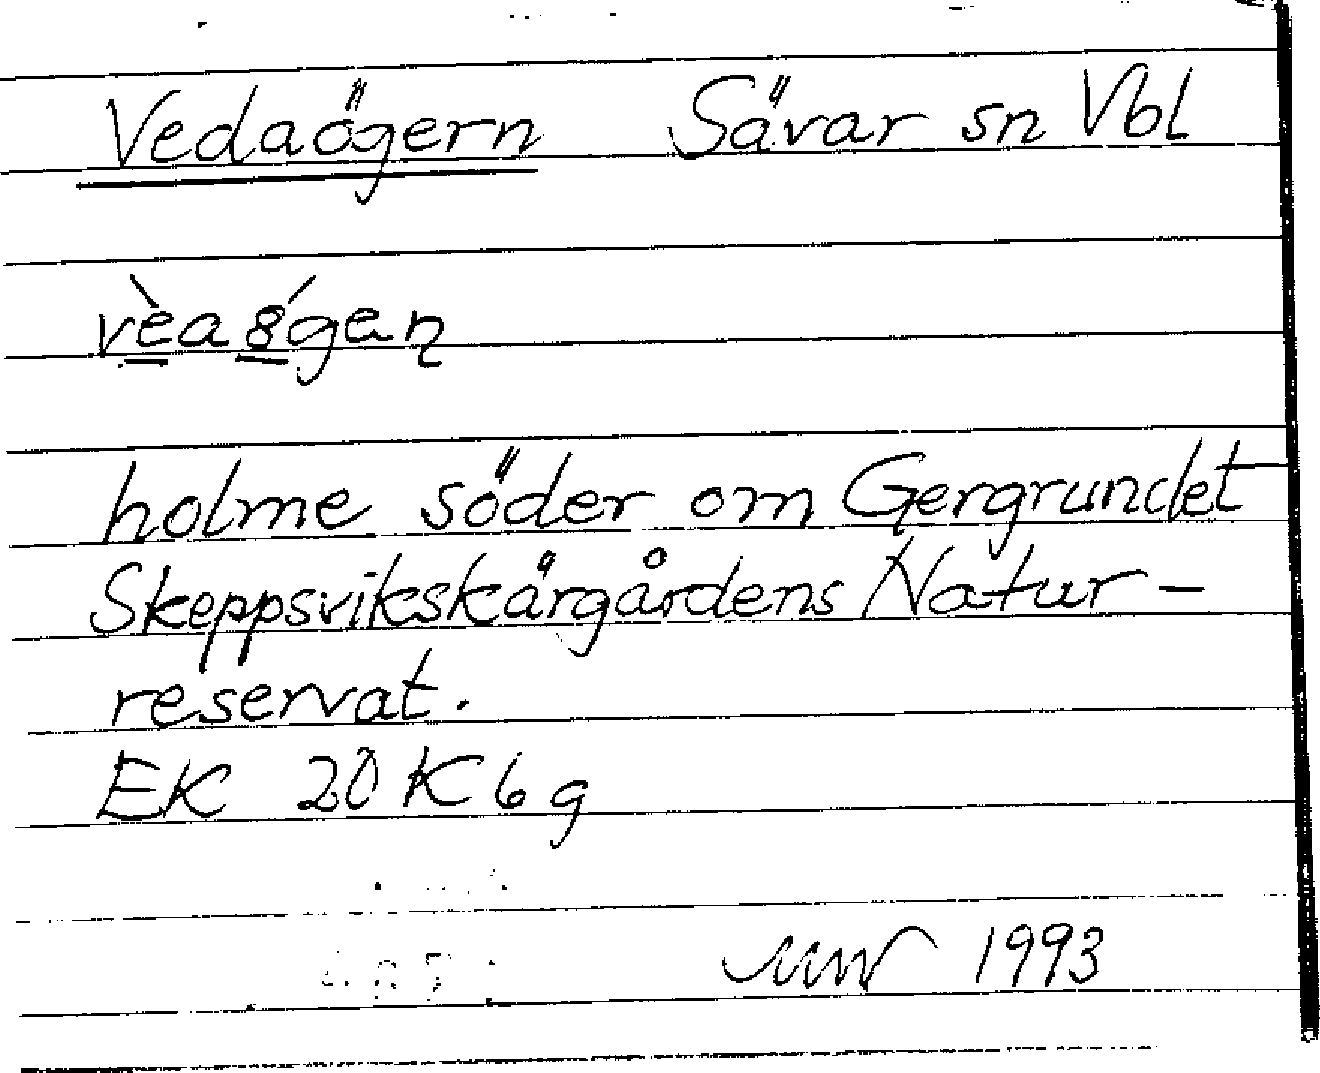 Vedaögern Sävar sn Vbl
vèa 8́gan
holme söder om Gergrundet
Skeppsvikskärgårdens Natur-
reservat.
EK 20 K 6 g
1993